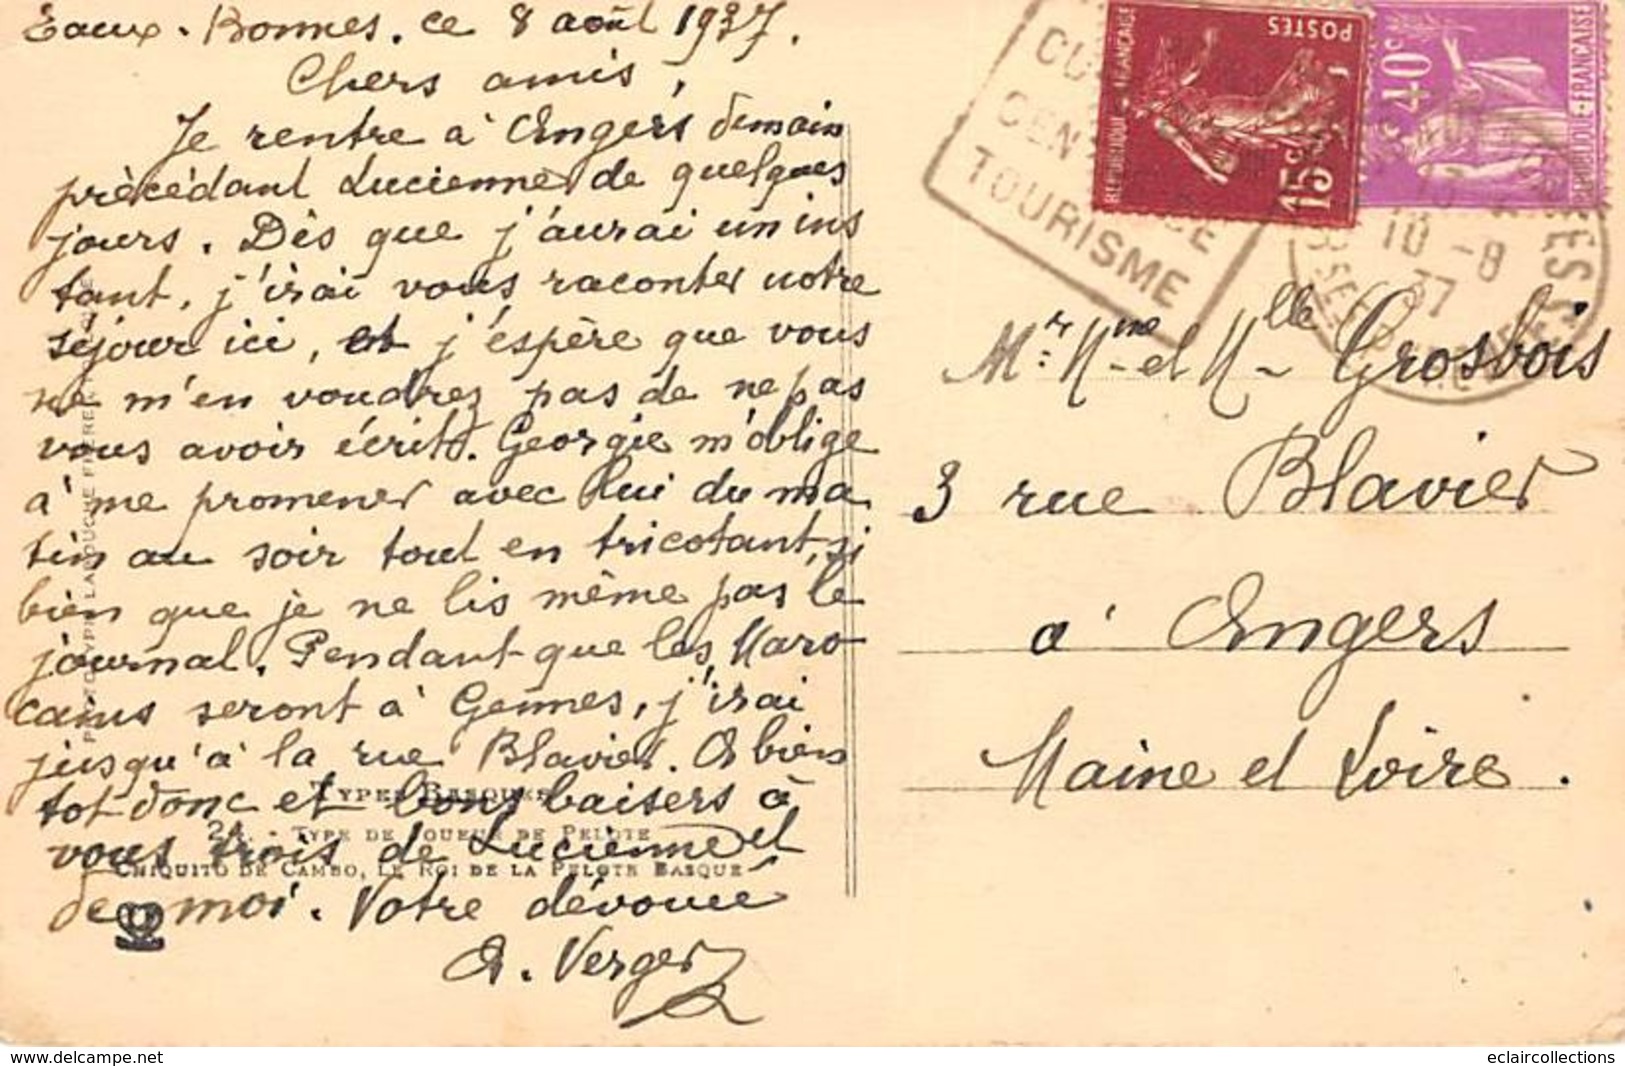 Eaux-Bonnes. ce 8 août 1937.
Chers amis,
Je rentre à Angers demain
précédant Lucienne de quelques
jours. Dès que j'aurai un ins
tant, j'irai vous raconter notre
séjour ici, et j'espère que vous
ne m'en voudrez pas de ne pas
vous avoir écrit. Georgie m'oblige
à me promener avec lui du ma
tin au soir tout en tricotant, si
bien que je ne lis même pas le
journal. Pendant que les Maro
cains seront à Gennes, j'irai
jusqu'à la rue Blavier. A bien
tot donc et bons baisers à
vous trois de Lucienne et
de moi. Votre dévouée
A. Verger
TYPES BASQUES
24. - TYPE DE JOUEUR DE PELOTE
CHIQUITO DE CAMBO, LE ROI DE LA PELOTE BASQUE
TOURISME
POSTES
REPUBLIQUE FRANÇAISE
15c
40c
REPUBLIQUE-FRANÇAISE
10-8
37
Mr. Mme et Mlle Grosbois
3 rue Blavier
à Angers
Maine et Loire.
www.delcampe.net
eclaircollections